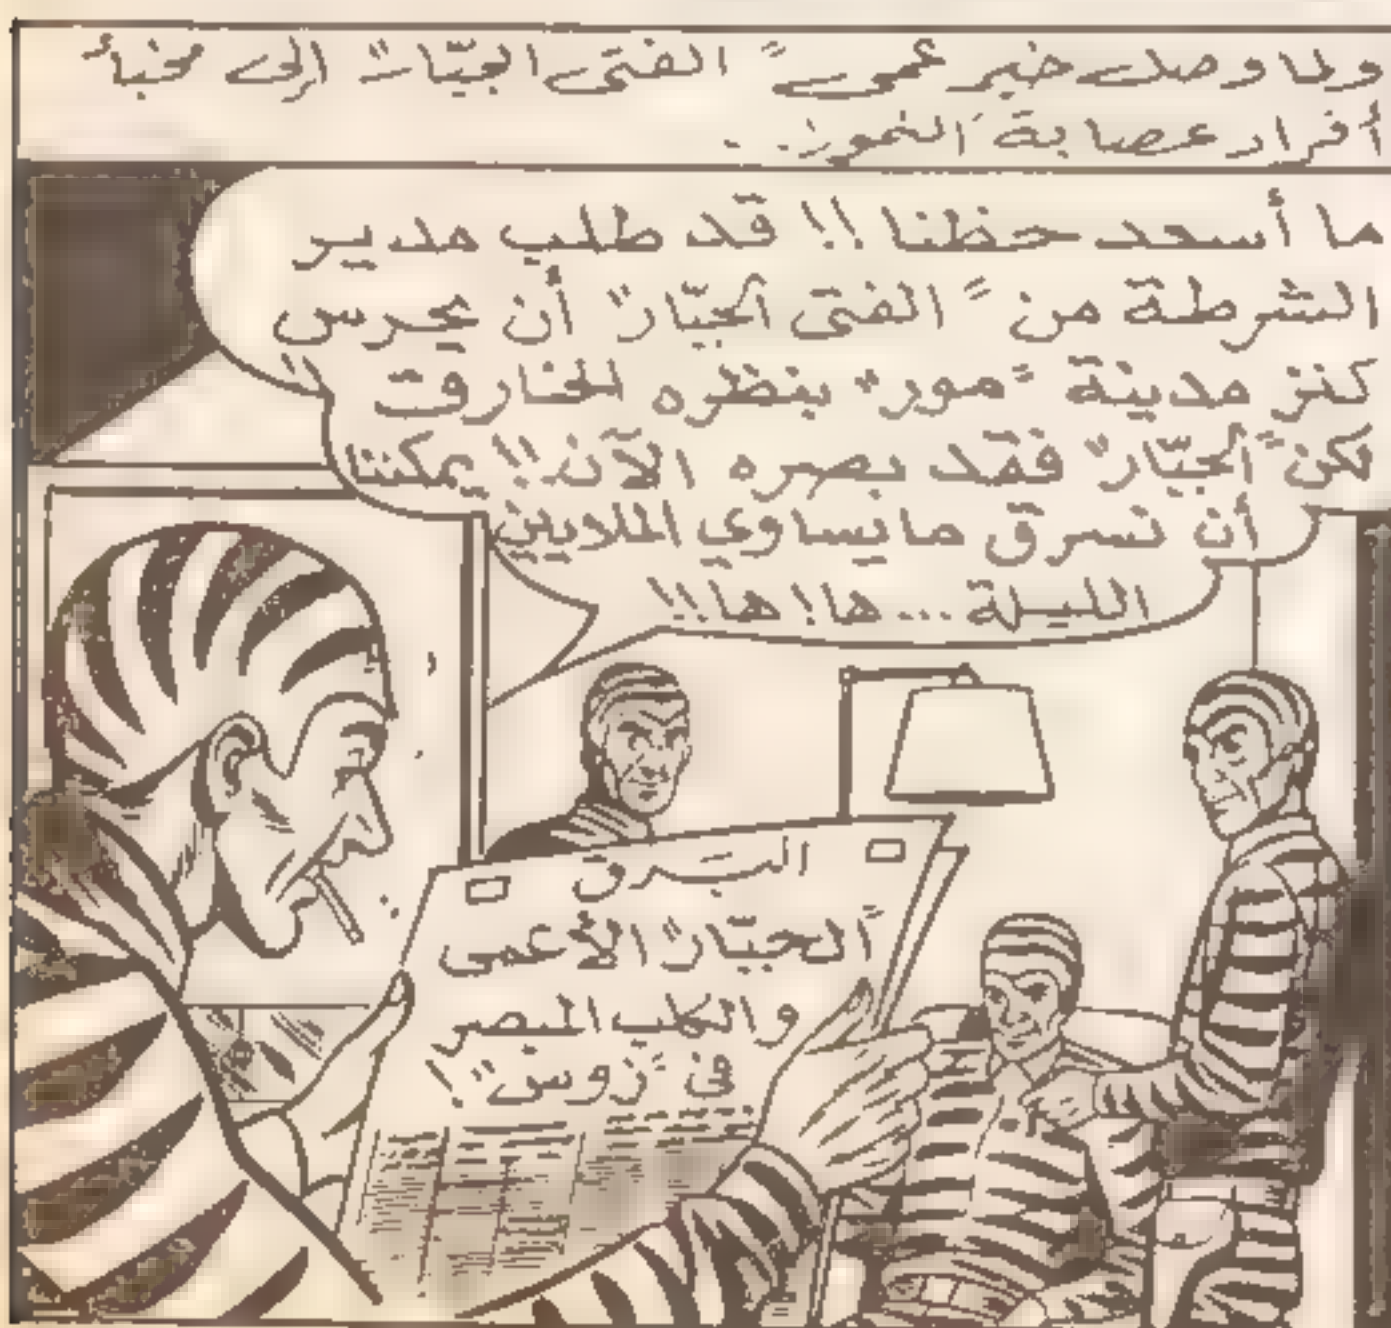 ولما وصل خبر عمى "الفتى الجبّار" إلى مخبأ
أفراد عصابة النمور..
ما أسعد حظنا!! قد طلب مدير
الشرطة من "الفتى الجبّار" أن يحرس
كنز مدينة "مور" بنظره الخارق
لكن "الجبّار" فقد بصره الآن!! يمكننا
أن نسرق ما يساوي الملايين
الليلة... ها! ها!!
البرق
"الجبّار" الأعمى
والكلب المبصر
في "زوس"!